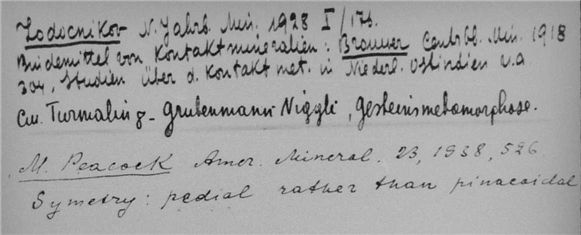 Lodocnikov N. Jahrb. Min. 1928 I/175.
Bindemittel von Kontaktmineralien: Brouwer Centrbl. Min. 1918
304, Studien über d. Kontaktmet. in Niederl. Ostindien u.a
Turmalin Grubenmann-Niggli, Gesteinsmetamorphose.
M. Peacock Amer. Mineral. 23, 1938, 526
Symetry: pedial rather than pinacoidal